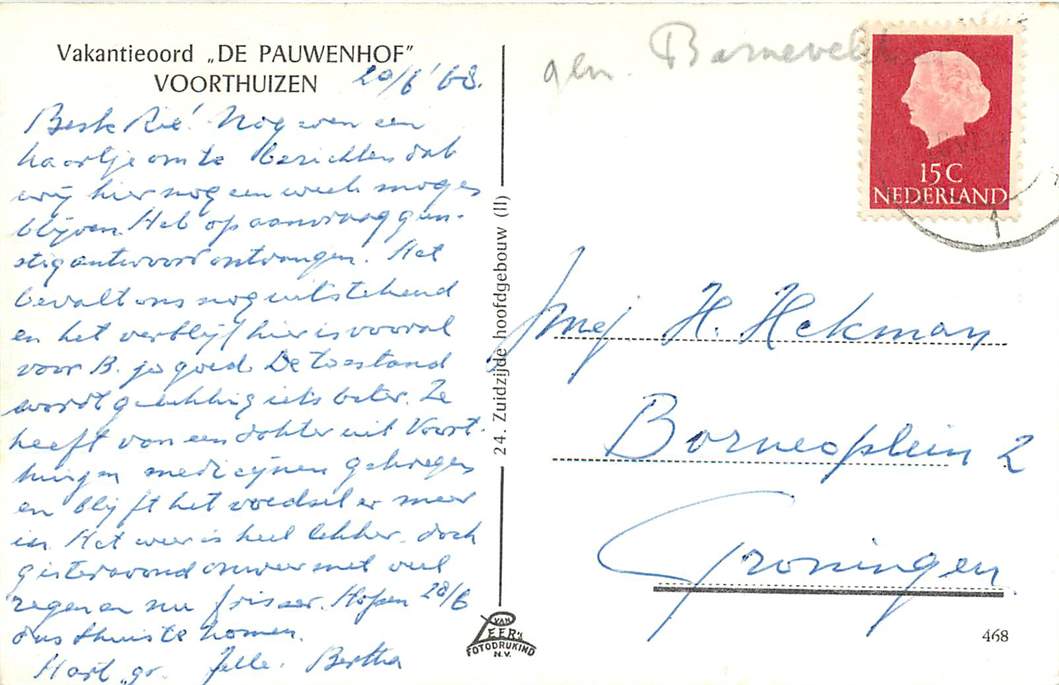 Vakantieoord „DE PAUWENHOF”
VOORTHUIZEN
20/6 '68.
Beste Rie! Nog even een
kaartje om te berichten dat
wij hier nog een week mogen
blijven. Heb op aanvraag gun-
stig antwoord ontvangen. Het
bevalt ons nog uitstekend
en het verblijf hier is vooral
voor B. zo goed. De toestand
wordt gelukkig iets beter. Ze
heeft van een dokter uit Voort-
huizen medicijnen gekregen
en blijft het voedsel er meer
in. Het weer is heel lekker. doch
gisteravond onweer met veel
regen en nu frisser. Hopen 28/6
dus thuis te komen.
Hart. gr. Jelle. Bertha
24. Zuidzijde hoofdgebouw (II)
VAN LEER'S
FOTODRUKIND
N.V.
gem. Barneveld
15 C
NEDERLAND
Mej H. Hekman
Borneoplein 2
Groningen
468